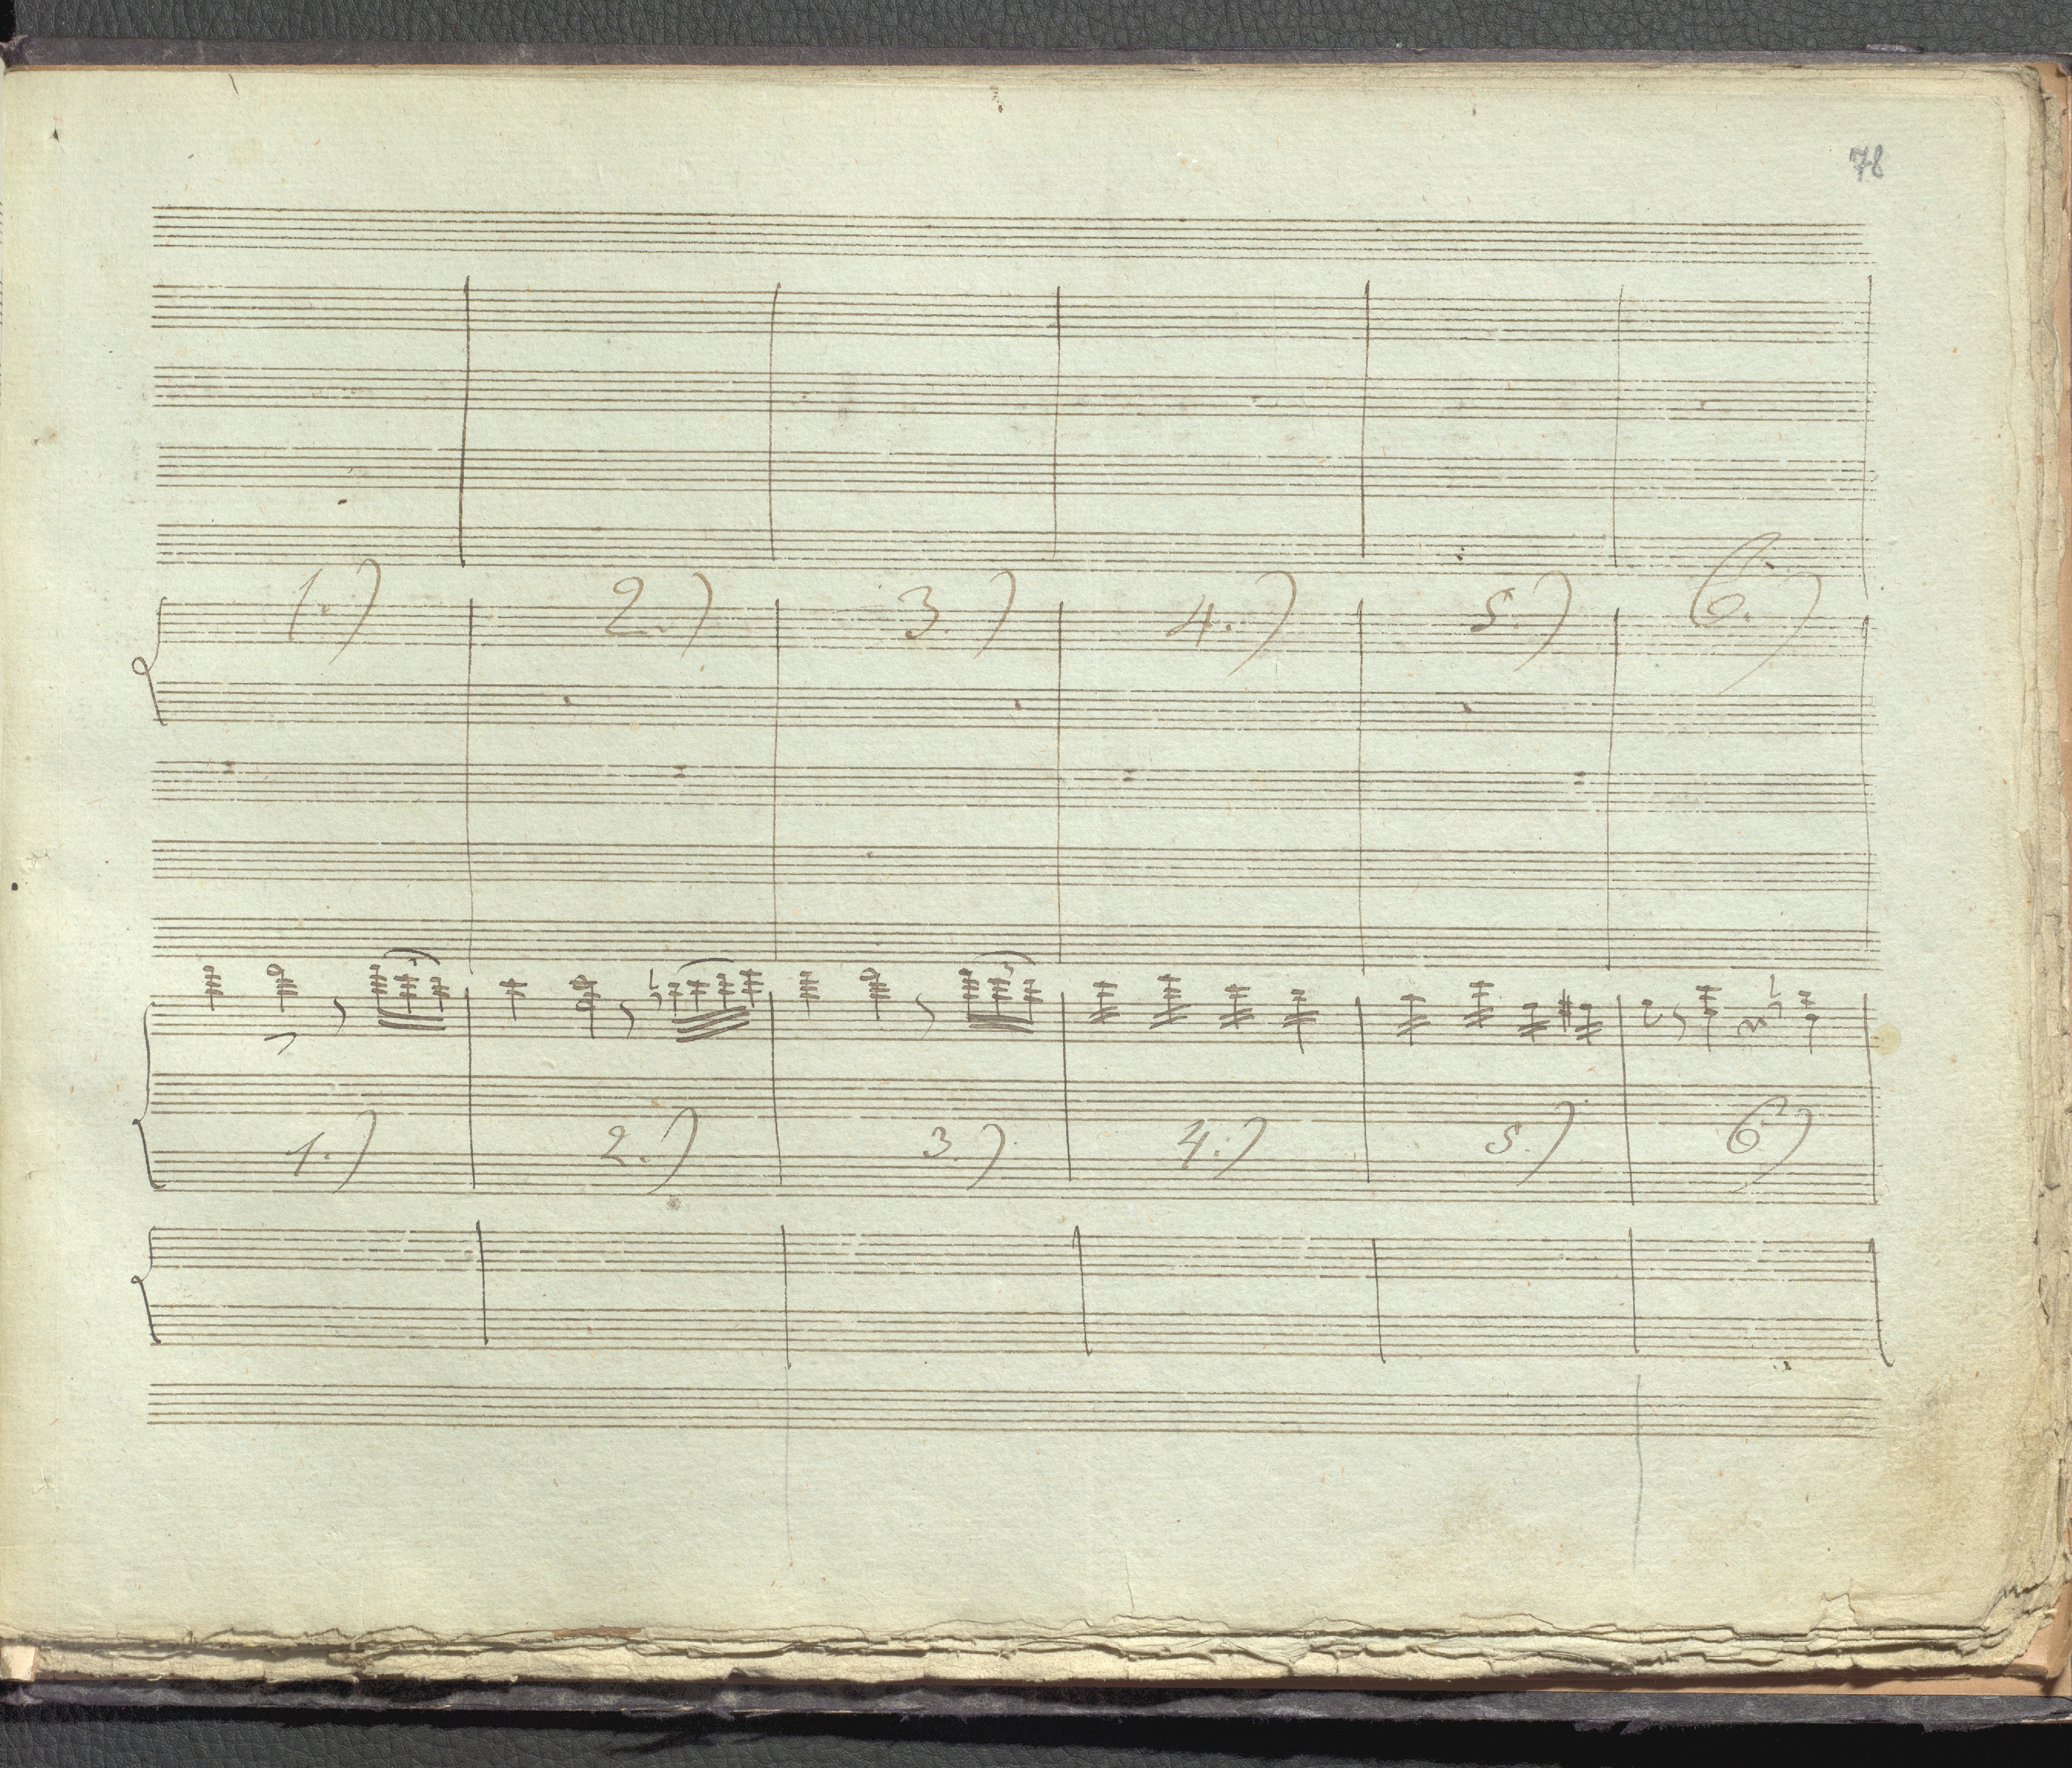 78
1.) 2.) 3.) 4.) 5.) 6.)
1.) 2.) 3.) 4.) 5.) 6)